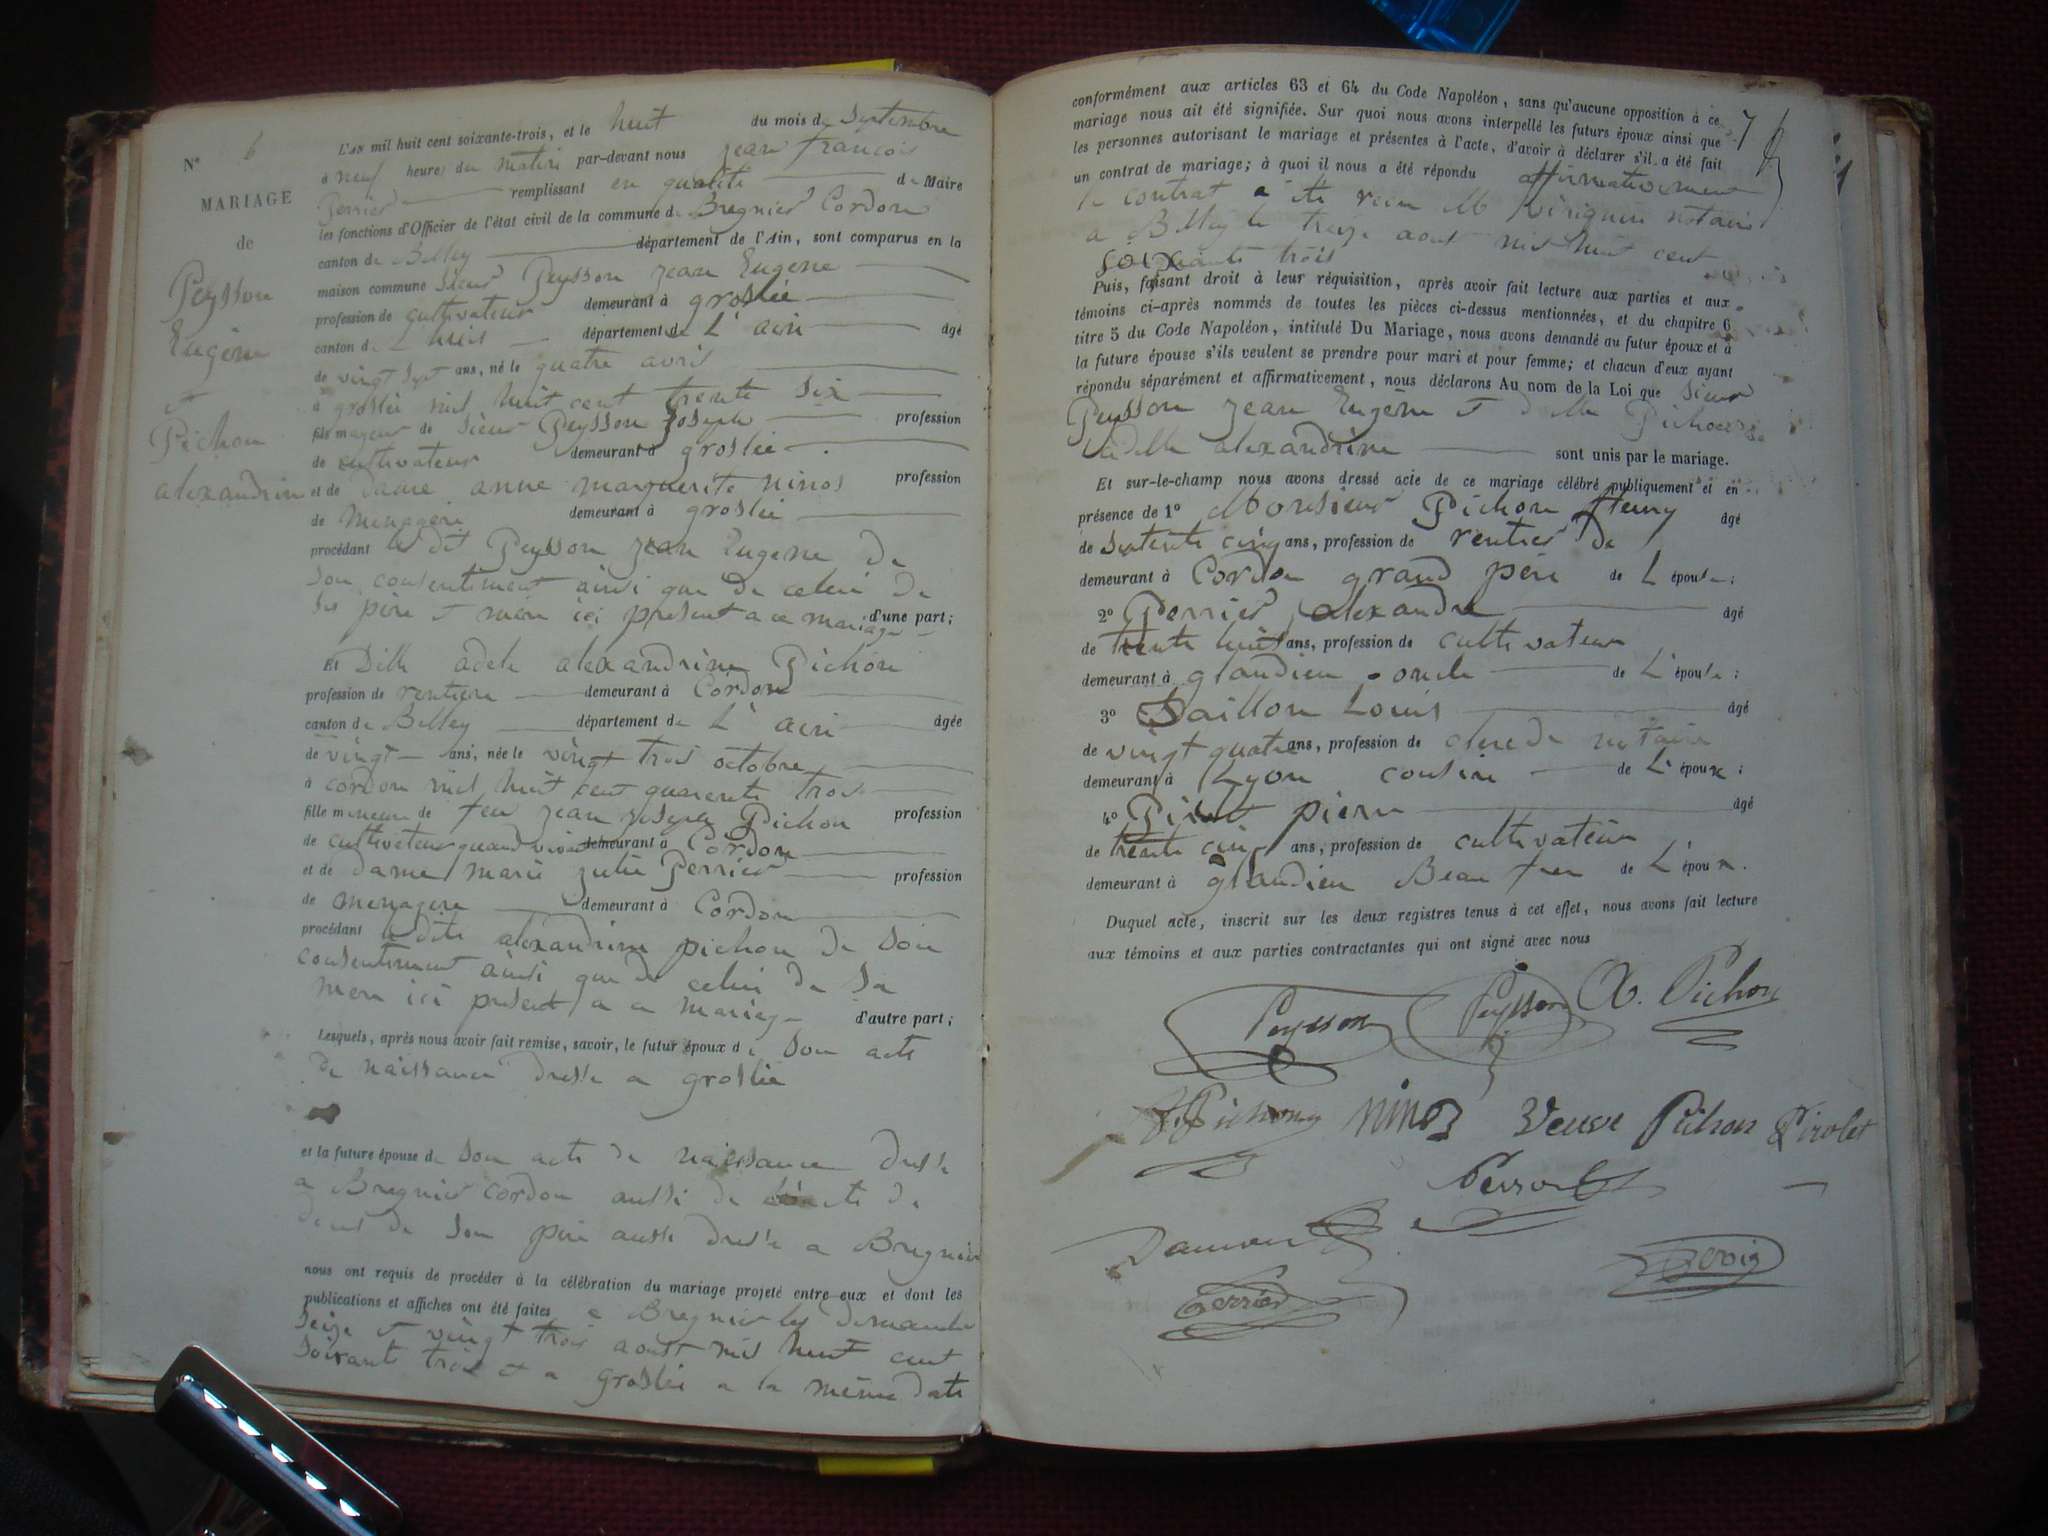 N° 6
MARIAGE
de
Peysson
Eugène
et
Pichon
alexandrin
L'AN mil huit cent soixante-trois, et le huit du mois de Septembre
à neuf heures du matin par-devant nous jean françois
Perrier remplissant en qualité de Maire
les fonctions d'Officier de l'état civil de la commune de Bregnier Cordon
canton de Belley département de l'Ain, sont comparus en la
maison commune Sieur Peysson jean Eugene
profession de cultivateur demeurant à groslée
canton de Lhuis département de L'ain âgé
de vingt sept ans, né le quatre avril
à groslée mil huit cent trente six
fils majeur de Sieur Peysson joseph profession
de cultivateur demeurant à groslée
et de Dame anne marguerite ninos profession
de menagere demeurant à groslée
procédant le dit Peysson jean Eugene de
son consentement ainsi que de celui de
ses père et mère ici present a ce mariage d'une part;
Et Dlle adele alexandrine Pichon
profession de rentiere demeurant à Cordon
canton de Belley département de L'ain âgée
de vingt ans, née le vingt trois octobre
à cordon mil huit cent quarente trois
fille mineure de feu jean joseph Pichon profession
de cultivateur quand vivait demeurant à Cordon
et de Dame marie julie Perrier profession
de menagere demeurant à Cordon
procédant la dite alexandrine pichon de son
consentement ainsi que de celui de sa
mere ici present a ce mariage d'autre part;
Lesquels, après nous avoir fait remise, savoir, le futur époux de son acte
de naissance dressé a groslée
et la future épouse de son acte de naissance dressé
a Bregnier cordon aussi de acte de
deces de son père aussi dressé a Bregnier
nous ont requis de procéder à la célébration du mariage projeté entre eux et dont les
publications et affiches ont été faites a Bregnier les dimanches
seize et vingt trois aoust mil huit cent
soixante trois et a groslée a la même date
conformément aux articles 63 et 64 du Code Napoléon, sans qu'aucune opposition à ce
mariage nous ait été signifiée. Sur quoi nous avons interpellé les futurs époux ainsi que
les personnes autorisant le mariage et présentes à l'acte, d'avoir à déclarer s'il a été fait
un contrat de mariage; à quoi il nous a été répondu affirmativement
le contrat a été recu notaire
a Belley le treize aout mil huit cent
soixante trois
Puis, faisant droit à leur réquisition, après avoir fait lecture aux parties et aux
témoins ci-après nommés de toutes les pièces ci-dessus mentionnées, et du chapitre 6
titre 5 du Code Napoléon, intitulé Du Mariage, nous avons demandé au futur époux et à
la future épouse s'ils veulent se prendre pour mari et pour femme; et chacun d'eux ayant
répondu séparément et affirmativement, nous déclarons Au nom de la Loi que Sieur
Peysson jean Eugène et Delle Pichon
adelle alexandrine sont unis par le mariage.
Et sur-le-champ nous avons dressé acte de ce mariage célébré publiquement et en
présence de 1° Monsieur Pichon âgé
de cinq ans, profession de rentier de
demeurant à Cordon grand père de L'épouse;
2° Perrier alexandre âgé
de trente huit ans, profession de cultivateur
demeurant à glandieu oncle de L'épouse;
3° Louis âgé
de vingt quatre ans, profession de clerc de notaire
demeurant à Lyon cousin de L'époux;
4° pierre âgé
de trente cinq ans, profession de cultivateur
demeurant à glandieu Beau frere de L'époux.
Duquel acte, inscrit sur les deux registres tenus à cet effet, nous avons fait lecture
aux témoins et aux parties contractantes qui ont signé avec nous
Peysson Peysson A. Pichon
Pichon ninoz Veuve Pichon Pirolet
Perrier